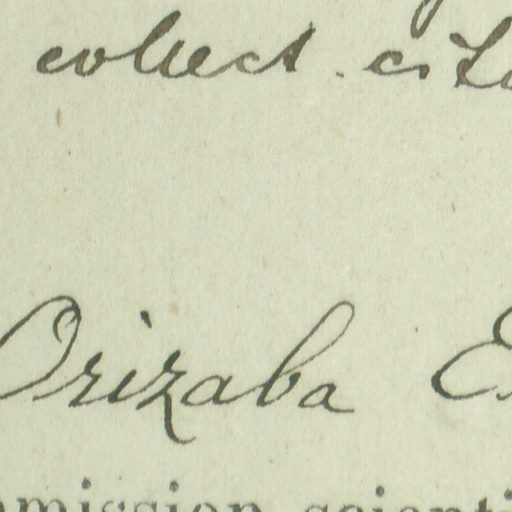 collect. cit
Orizaba E
mmission scienti